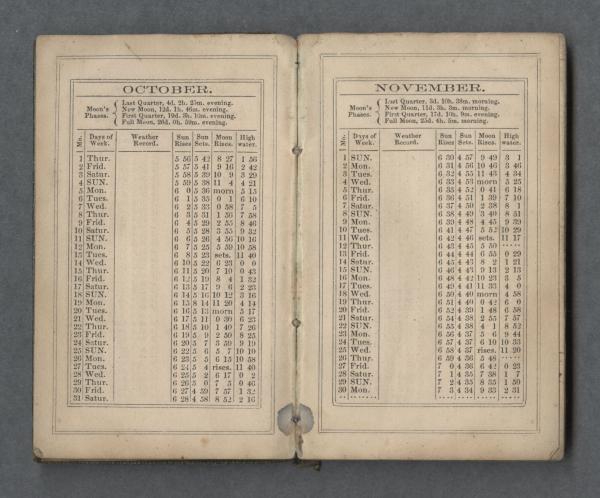 OCTOBER.
Moon's Phases.
Last Quarter, 4d. 2h. 25m. evening.
New Moon, 12d. 1h. 46m. evening.
First Quarter, 19d. 3h. 10m. evening.
Full Moon, 26d. 0h. 59m. evening.
Mn. Days of Week. Weather Record. Sun Rises Sun Sets. Moon Rises. High water.
1 Thur. 5 56 5 42 8 27 1 56
2 Frid. 5 57 5 41 9 16 2 42
3 Satur. 5 58 5 39 10 9 3 29
4 SUN. 5 59 5 38 11 4 4 21
5 Mon. 6 0 5 36 morn 5 15
6 Tues. 6 1 5 35 0 1 6 10
7 Wed. 6 2 5 33 0 58 7 5
8 Thur. 6 3 5 31 1 56 7 58
9 Frid. 6 4 5 29 2 55 8 46
10 Satur. 6 5 5 28 3 55 9 32
11 SUN. 6 6 5 26 4 56 10 16
12 Mon. 6 7 5 25 5 59 10 58
13 Tues. 6 8 5 23 sets. 11 40
14 Wed. 6 10 5 22 6 23 0 0
15 Thur. 6 11 5 20 7 10 0 43
16 Frid. 6 12 5 19 8 4 1 32
17 Satur. 6 13 5 17 9 6 2 23
18 SUN. 6 14 5 16 10 12 3 16
19 Mon. 6 15 5 14 11 20 4 14
20 Tues. 6 16 5 13 morn 5 17
21 Wed. 6 17 5 11 0 30 6 23
22 Thur. 6 18 5 10 1 40 7 26
23 Frid. 6 19 5 9 2 50 8 25
24 Satur. 6 20 5 7 3 59 9 19
25 SUN. 6 22 5 6 5 7 10 10
26 Mon. 6 23 5 5 6 15 10 58
27 Tues. 6 24 5 4 rises. 11 40
28 Wed. 6 25 5 2 6 17 0 2
29 Thur. 6 26 5 0 7 5 0 46
30 Frid. 6 27 4 59 7 57 1 32
31 Satur. 6 28 4 58 8 52 2 16
NOVEMBER.
Moon's Phases.
Last Quarter, 3d. 10h. 38m. morning.
New Moon, 11d. 3h. 3m. morning.
First Quarter, 17d. 10h. 9m. evening.
Full Moon, 25d. 4h. 5m. morning.
Mn. Days of Week. Weather Record. Sun Rises Sun Sets. Moon Rises. High water.
1 SUN. 6 30 4 57 9 49 3 1
2 Mon. 6 31 4 56 10 46 3 46
3 Tues. 6 32 4 55 11 43 4 34
4 Wed. 6 33 4 53 morn 5 25
5 Thur. 6 35 4 52 0 41 6 18
6 Frid. 6 36 4 51 1 39 7 10
7 Satur. 6 37 4 50 2 38 8 1
8 SUN. 6 38 4 49 3 40 8 51
9 Mon. 6 39 4 48 4 45 9 39
10 Tues. 6 41 4 47 5 52 10 29
11 Wed. 6 42 4 46 sets. 11 17
12 Thur. 6 43 4 45 5 50 .....
13 Frid. 6 44 4 44 6 55 0 29
14 Satur. 6 45 4 43 8 2 1 21
15 SUN. 6 46 4 43 9 13 2 13
16 Mon. 6 48 4 42 10 23 3 5
17 Tues. 6 49 4 41 11 33 4 0
18 Wed. 6 50 4 40 morn 4 58
19 Thur. 6 51 4 40 0 42 6 0
20 Frid. 6 52 4 39 1 48 6 58
21 Satur. 6 54 4 38 2 55 7 57
22 SUN. 6 55 4 38 4 1 8 52
23 Mon. 6 56 4 37 5 6 9 44
24 Tues. 6 57 4 37 6 10 10 33
25 Wed. 6 58 4 37 rises. 11 20
26 Thur. 6 59 4 36 5 48 .....
27 Frid. 7 0 4 36 6 42 0 23
28 Satur. 7 1 4 35 7 38 1 7
29 SUN. 7 2 4 35 8 35 1 50
30 Mon. 7 3 4 34 9 33 2 31